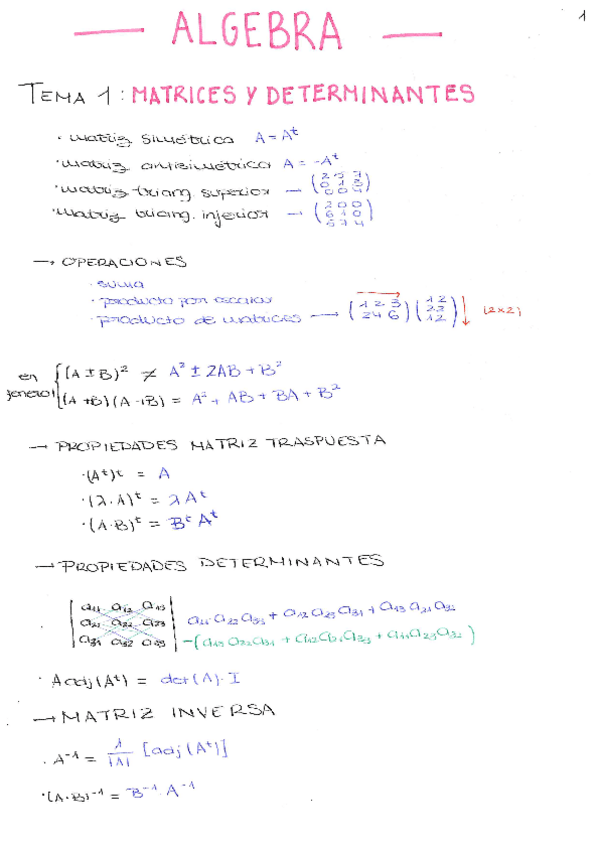 1
ALGEBRA
TEMA 1: MATRICES Y DETERMINANTES
· matriz simétrica A = Aᵗ
· matriz antisimétrica A = -Aᵗ
· matriz triang. superior → (2 5 7 / 0 1 3 / 0 0 4)
· matriz triang. inferior → (2 0 0 / 6 1 0 / 5 7 4)
→ OPERACIONES
· suma
· producto por escalar
· producto de matrices → (1 2 3 / 2 4 6) (1 2 / 2 2 / 1 2) (2x2)
en general { (A ± B)² ≠ A² ± 2AB + B²
(A + B)(A + B) = A² + AB + BA + B²
→ PROPIEDADES MATRIZ TRASPUESTA
· (Aᵗ)ᵗ = A
· (λ·A)ᵗ = λAᵗ
· (A·B)ᵗ = Bᵗ Aᵗ
→ PROPIEDADES DETERMINANTES
· | a₁₁ a₁₂ a₁₃ | a₁₁ a₂₂ a₃₃ + a₁₂ a₂₃ a₃₁ + a₁₃ a₂₁ a₃₂
| a₂₁ a₂₂ a₂₃ |
| a₃₁ a₃₂ a₃₃ | -(a₁₃ a₂₂ a₃₁ + a₁₂ a₂₁ a₃₃ + a₁₁ a₂₃ a₃₂)
· A adj(Aᵗ) = det(A)·I
→ MATRIZ INVERSA
· A⁻¹ = 1/|A| [adj(Aᵗ)]
· (A·B)⁻¹ = B⁻¹ · A⁻¹